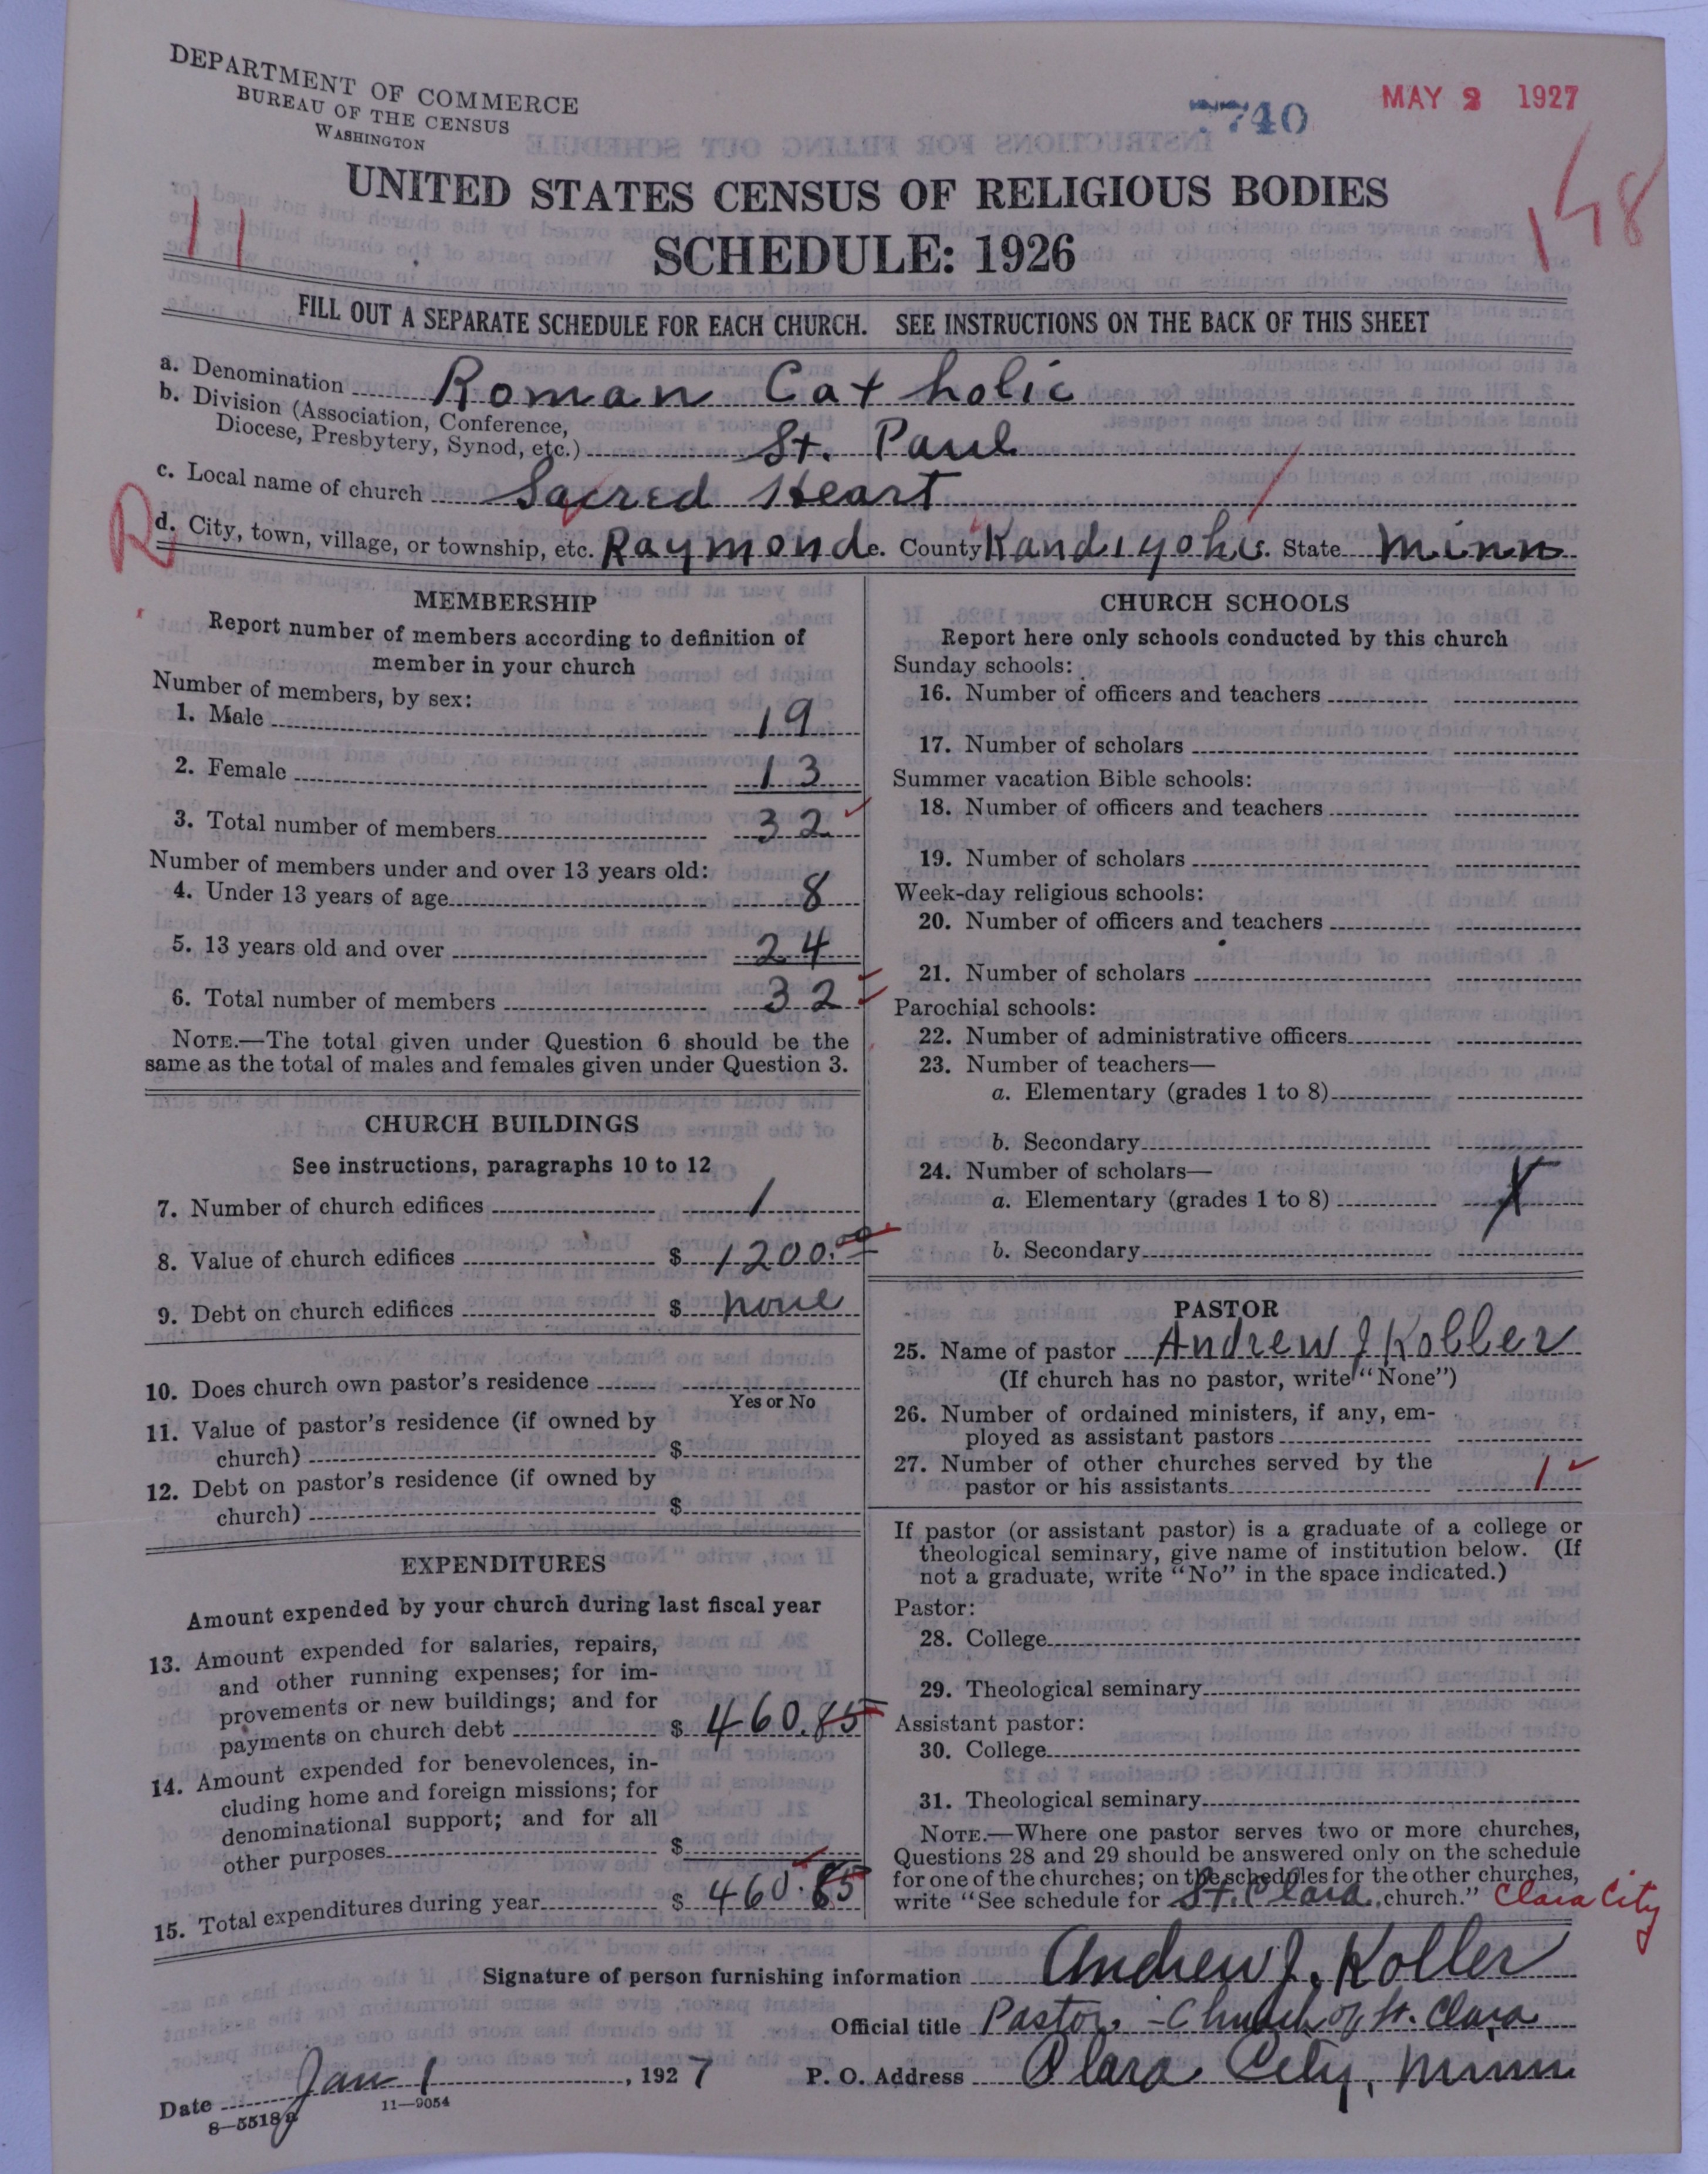 DEPARTMENT OF COMMERCE
BUREAU OF THE CENSUS
WASHINGTON
7740
MAY 2 1927
UNITED STATES CENSUS OF RELIGIOUS BODIES
11
148
SCHEDULE: 1926
FILL OUT A SEPARATE SCHEDULE FOR EACH CHURCH. SEE INSTRUCTIONS ON THE BACK OF THIS SHEET
a. Denomination Roman Catholic
b. Division (Association, Conference,
Diocese, Presbytery, Synod, etc.) St. Paul
c. Local name of church Sacred Heart
R
d. City, town, village, or township, etc. Raymond. County Kandiyohi. State Minn
MEMBERSHIP
Report number of members according to definition of
member in your church
Number of members, by sex:
1. Male 19
2. Female 13
3. Total number of members 32
Number of members under and over 13 years old:
4. Under 13 years of age 8
5. 13 years old and over 24
6. Total number of members 32
NOTE.—The total given under Question 6 should be the
same as the total of males and females given under Question 3.
CHURCH BUILDINGS
See instructions, paragraphs 10 to 12
7. Number of church edifices 1
8. Value of church edifices $ 1200.00
9. Debt on church edifices $ none
10. Does church own pastor's residence
Yes or No
11. Value of pastor's residence (if owned by
church) $
12. Debt on pastor's residence (if owned by
church) $
EXPENDITURES
Amount expended by your church during last fiscal year
13. Amount expended for salaries, repairs,
and other running expenses; for im-
provements or new buildings; and for
payments on church debt $ 460.85
14. Amount expended for benevolences, in-
cluding home and foreign missions; for
denominational support; and for all
other purposes $
15. Total expenditures during year $ 460.85
CHURCH SCHOOLS
Report here only schools conducted by this church
Sunday schools:
16. Number of officers and teachers
17. Number of scholars
Summer vacation Bible schools:
18. Number of officers and teachers
19. Number of scholars
Week-day religious schools:
20. Number of officers and teachers
21. Number of scholars
Parochial schools:
22. Number of administrative officers
23. Number of teachers—
a. Elementary (grades 1 to 8)
b. Secondary
24. Number of scholars—
a. Elementary (grades 1 to 8) X
b. Secondary
PASTOR
25. Name of pastor Andrew J Koller
(If church has no pastor, write "None")
26. Number of ordained ministers, if any, em-
ployed as assistant pastors
27. Number of other churches served by the
pastor or his assistants 1
If pastor (or assistant pastor) is a graduate of a college or
theological seminary, give name of institution below. (If
not a graduate, write "No" in the space indicated.)
Pastor:
28. College
29. Theological seminary
Assistant pastor:
30. College
31. Theological seminary
NOTE.—Where one pastor serves two or more churches,
Questions 28 and 29 should be answered only on the schedule
for one of the churches; on the schedules for the other churches,
write "See schedule for St. Clara church." Clara City
Signature of person furnishing information Andrew J. Koller
Official title Pastor, - Church of St. Clara
Date Jan 1, 1927 P. O. Address Clara City, Minn
8—5518a 11—9054